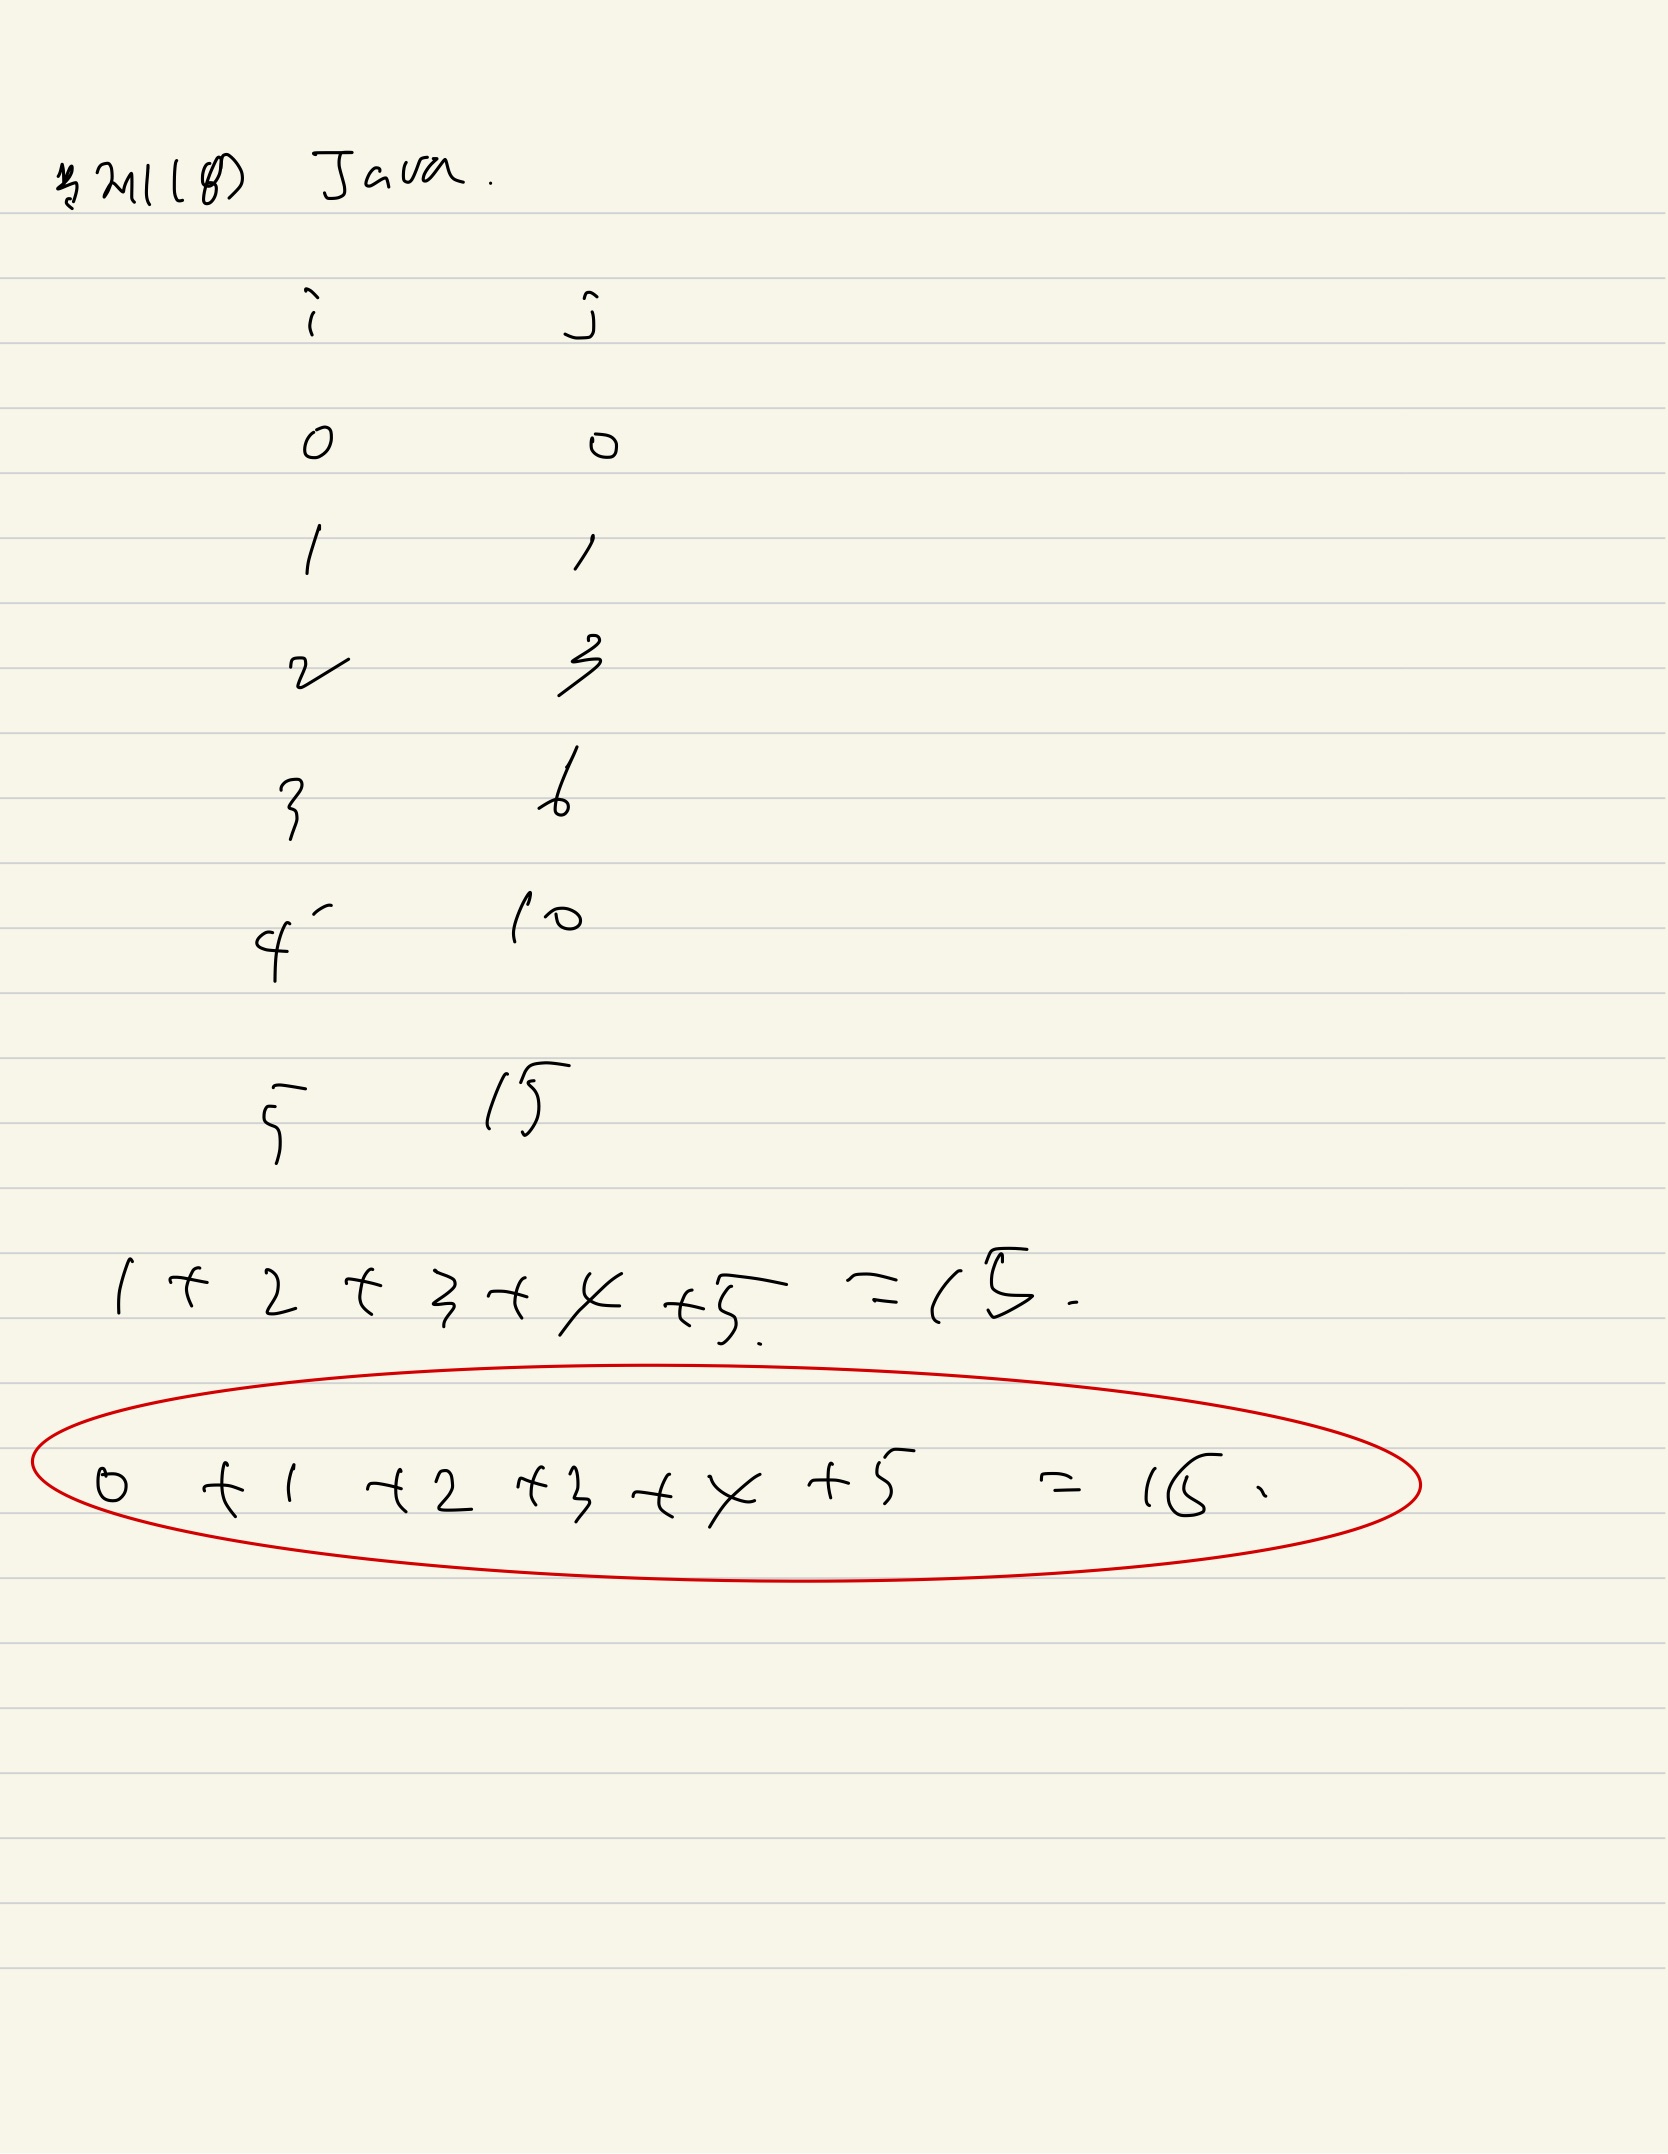 Java.
i j
0 0
1 1
2 3
3 6
4 10
5 15
1 + 2 + 3 + 4 + 5. = 15.
0 + 1 + 2 + 3 + 4 + 5 = 15.